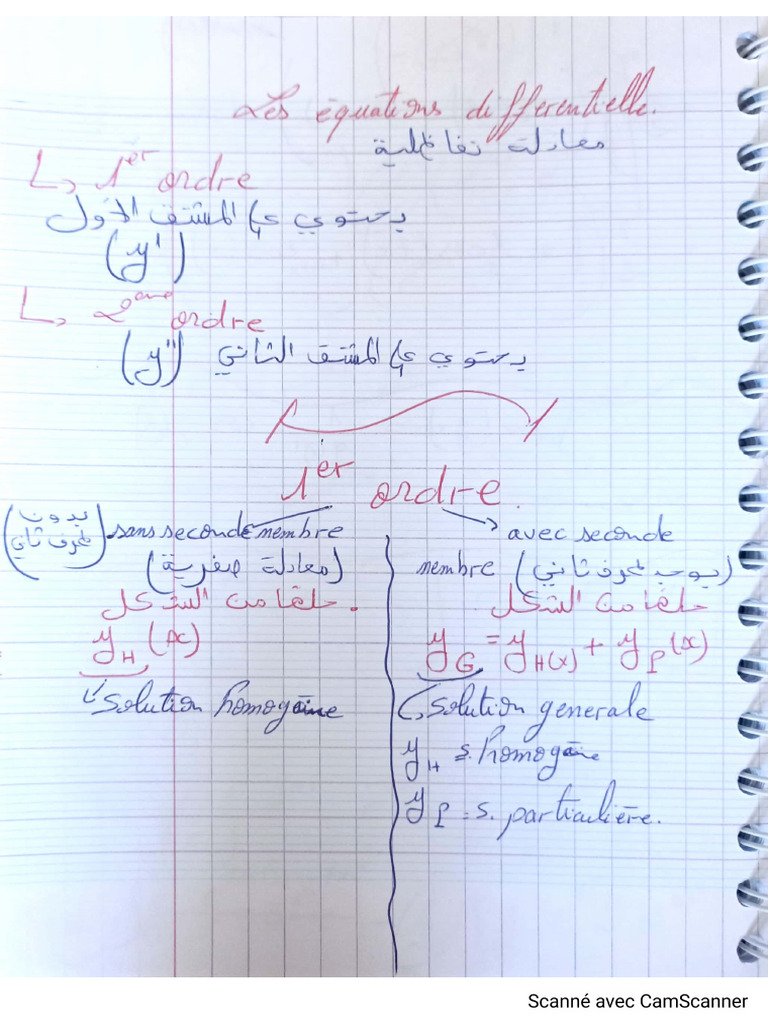 Les équations differentielle.
معادلة تفاظلية
↳ 1er ordre
يحتوي على المشتق الأول
(y')
↳ 2ème ordre
يحتوي على المشتق الثاني (y'')
1er ordre.
sans seconde membre (بدون طرف ثاني)
(معادلة صفرية)
حلها من الشكل.
yH (x)
↳ Solution homogène
→ avec seconde
membre (يوجد طرف ثاني)
حلها من الشكل
yG = yH(x) + yP(x)
↳ Solution generale
yH s. homogène
yP = s. particulière.
Scanné avec CamScanner